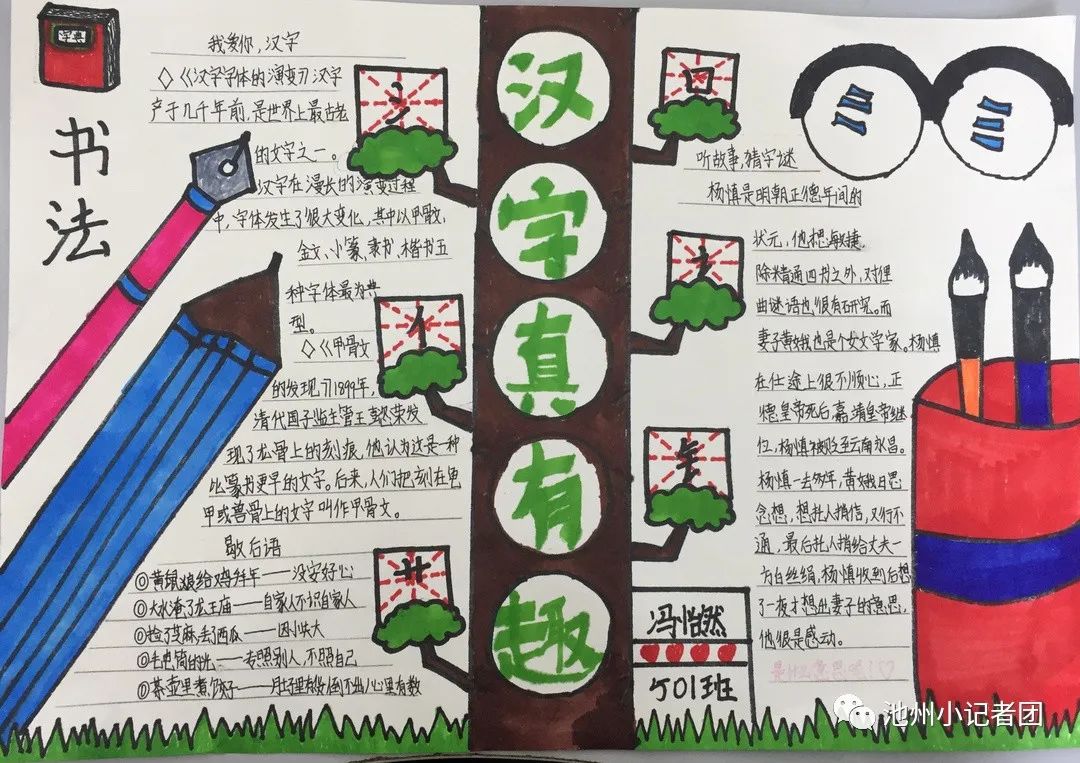 字典
书法
我爱你,汉字
◇《汉字字体的演变》汉字
产于几千年前,是世界上最古老
的文字之一。
汉字在漫长的演变过程
中,字体发生了很大变化,其中以甲骨文,
金文、小篆、隶书、楷书五
种字体最为典
型。
◇《甲骨文
的发现》1899年,
清代国子监主管王懿荣发
现了龙骨上的刻痕,他认为这是一种
比篆书更早的文字。后来,人们把刻在龟
甲或兽骨上的文字叫作甲骨文。
歇后语
①黄鼠狼给鸡拜年——没安好心
②大水淹了龙王庙——自家人不识自家人
③捡了芝麻丢了西瓜——因小失大
④手电筒的光——专照别人,不照自己
⑤茶壶里煮饺子——肚里有货倒不出/心里有数
氵
亻
艹
汉
字
真
有
趣
口
冯怡然
501班
听故事,猜字谜
杨慎是明朝正德年间的
状元,他思想敏捷,
除精通四书之外,对俚
曲谜语也很有研究。而
妻子黄娥也是个女文学家。杨慎
在仕途上很不顺心,正
德皇帝死后嘉靖皇帝继
位,杨慎被贬至云南永昌。
杨慎一去多年,黄娥日思
念想,想托人捎信,又行不
通,最后托人捎给丈夫一
方白丝绢,杨慎收到后想
了一夜才想出妻子的意思,
他很是感动。
池州小记者团